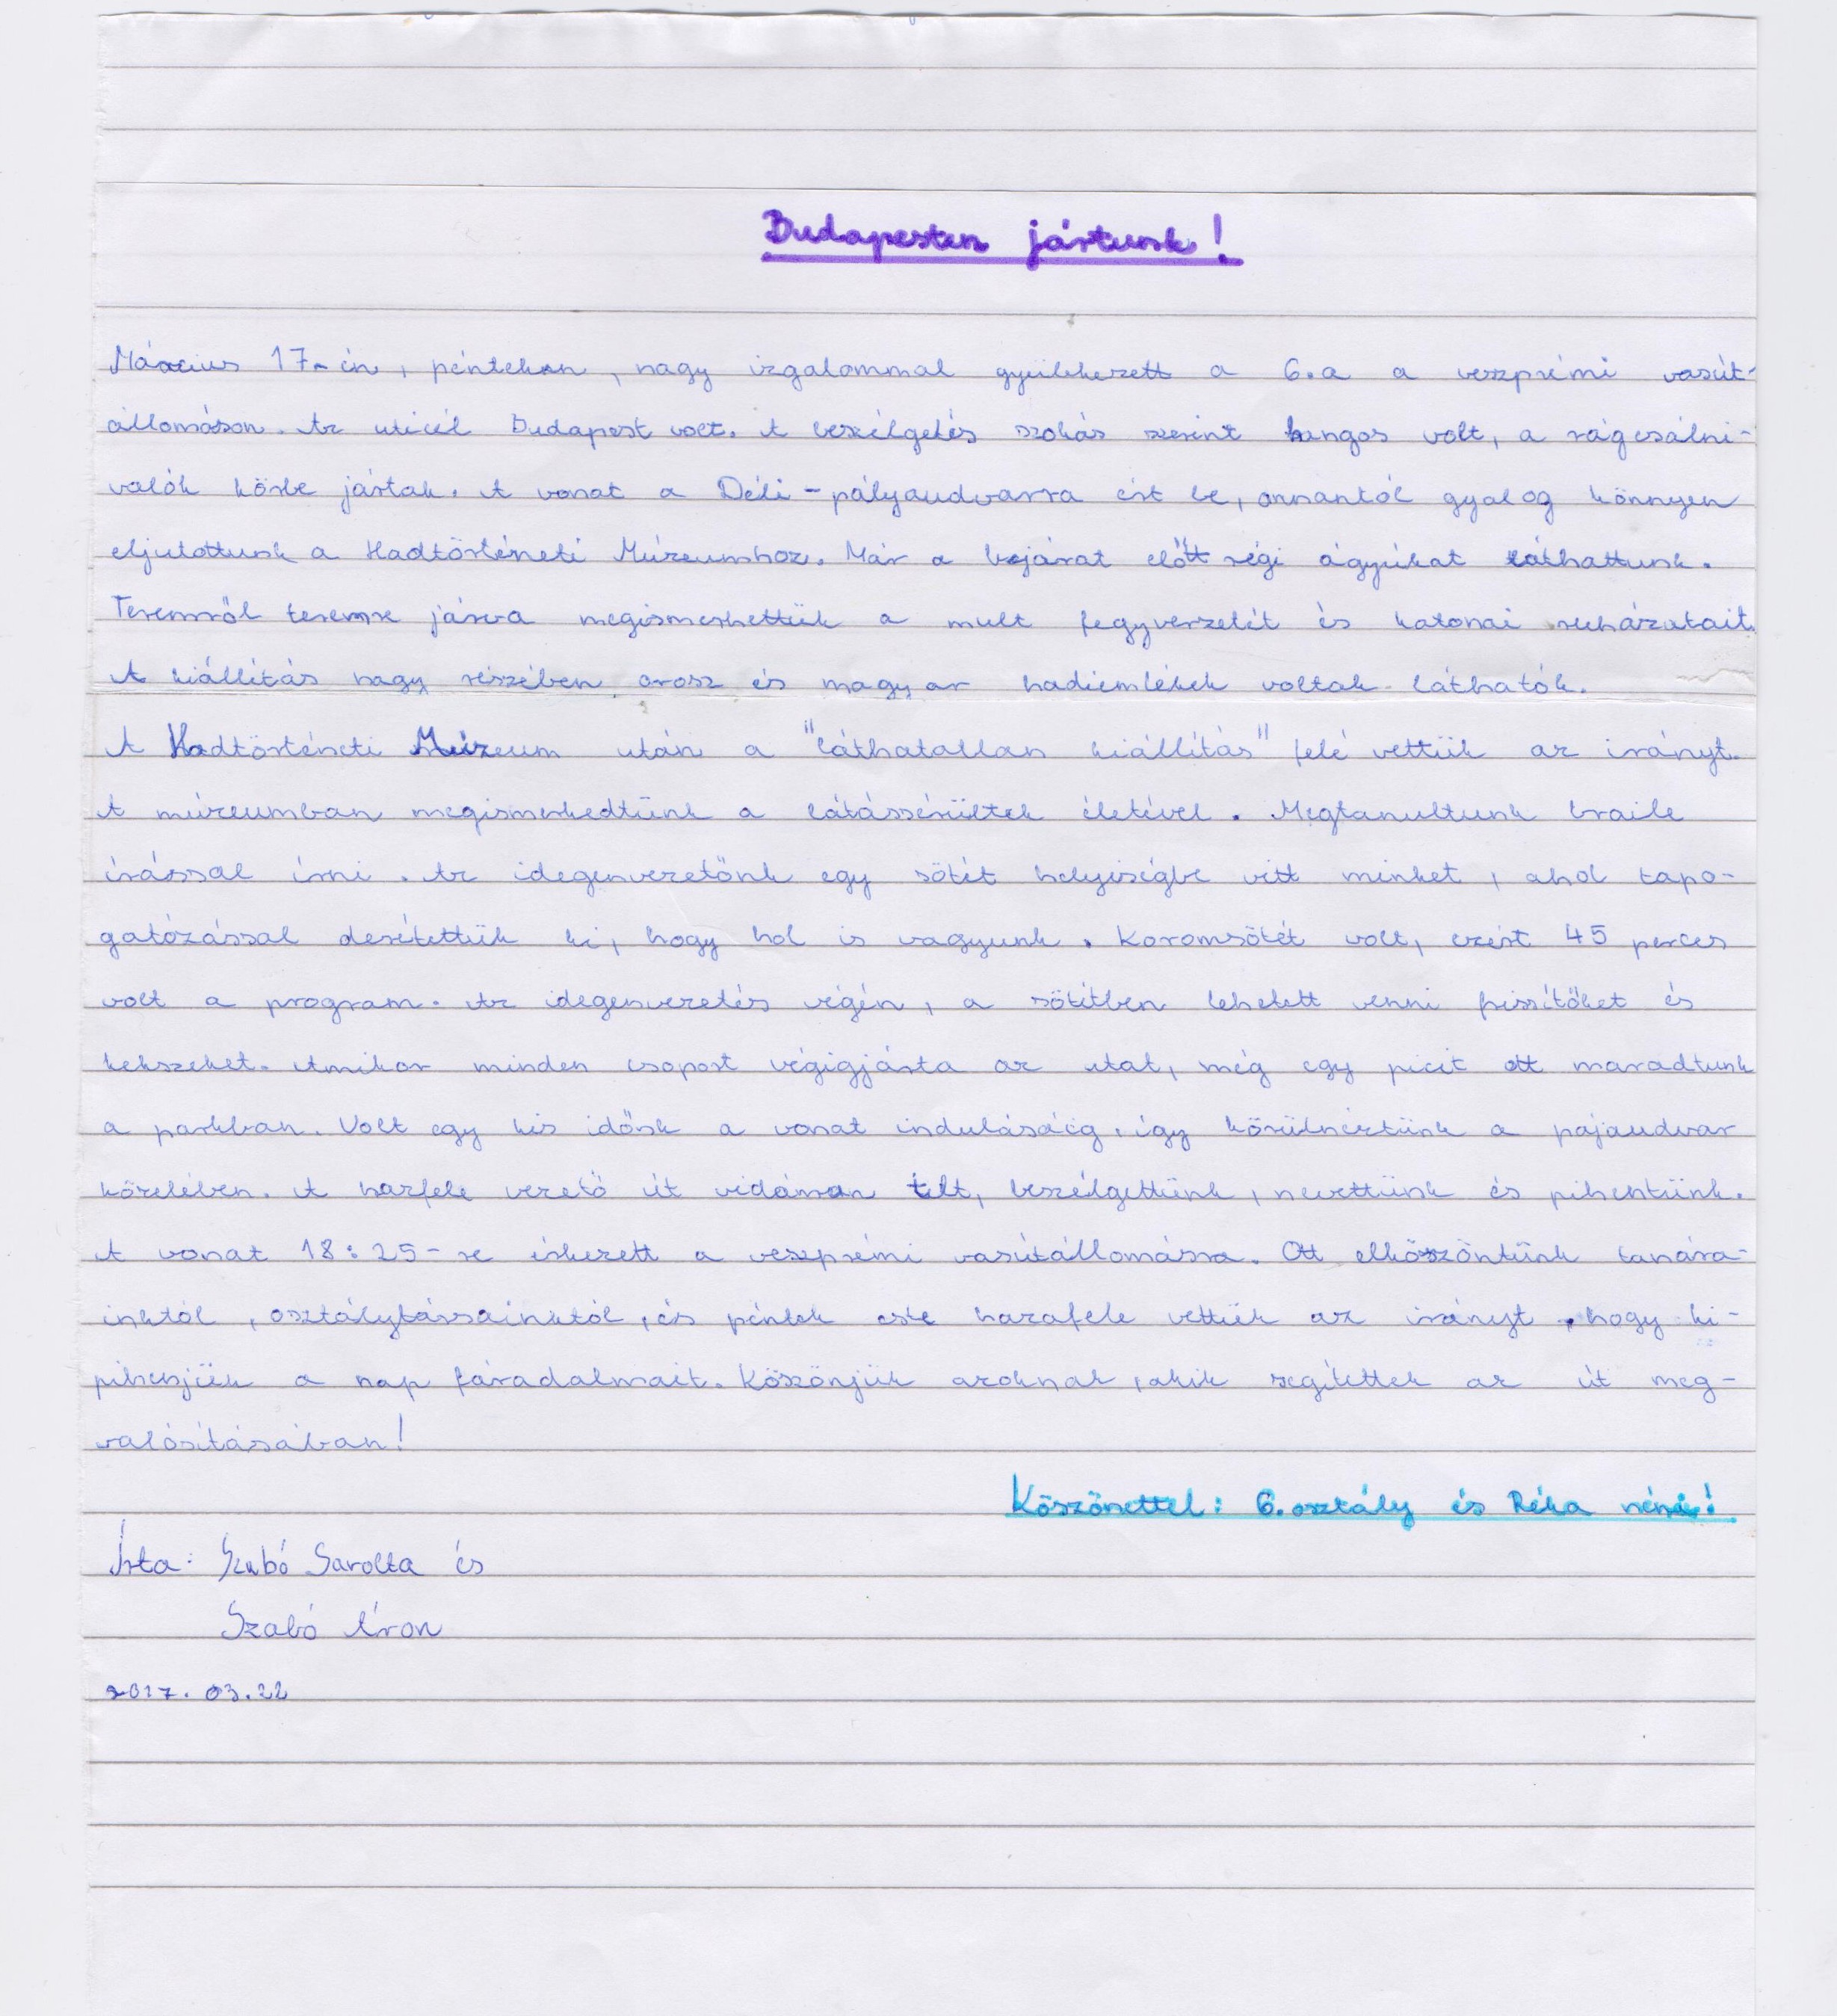 Budapesten jártunk!
Március 17-én, pénteken, nagy izgalommal gyülekezett a 6.a a veszprémi vasút-
állomáson. Az uticél Budapest volt. A beszélgetés szokás szerint hangos volt, a rágcsálni-
valók körbe jártak. A vonat a Déli-pályaudvarra ért be, onnantól gyalog könnyen
eljutottunk a Hadtörténeti Múzeumhoz. Már a bejárat előtt régi ágyúkat láthattunk.
Teremről teremre járva megismerhettük a mult fegyverzetét és katonai ruházatait.
A kiállítás nagy részében orosz és magyar hadiemlékek voltak láthatók.
A Hadtörténeti Múzeum után a "láthatatlan kiállítás" felé vettük az irányt.
A múzeumban megismerkedtünk a látássérültek életével. Megtanultunk braile
írással írni. Az idegenvezetőnk egy sötét helyiségbe vitt minket, ahol tapo-
gatózással derítettük ki, hogy hol is vagyunk. Koromsötét volt, ezért 45 perces
volt a program. Az idegenvezetés végén, a sötétben lehetett venni frissítőket és
kekszeket. Amikor minden csoport végigjárta az utat, még egy picit ott maradtunk
a parkban. Volt egy kis időnk a vonat indulásáig, így körülnéztünk a pájaudvar
közelében. A hazfele vezető út vidáman telt, beszélgettünk, nevettünk és pihentünk.
A vonat 18:25-re érkezett a veszprémi vasútállomásra. Ott elköszöntünk tanára-
inktól, osztálytársainktól, és péntek este hazafele vettük az irányt, hogy ki-
pihenjük a nap fáradalmait. Köszönjük azoknak, akik segítettek az út meg-
valósításában!
Köszönettel: 6. osztály és Réka néni!
Írta: Szabó Sarolta és
Szabó Áron
2017. 03. 22